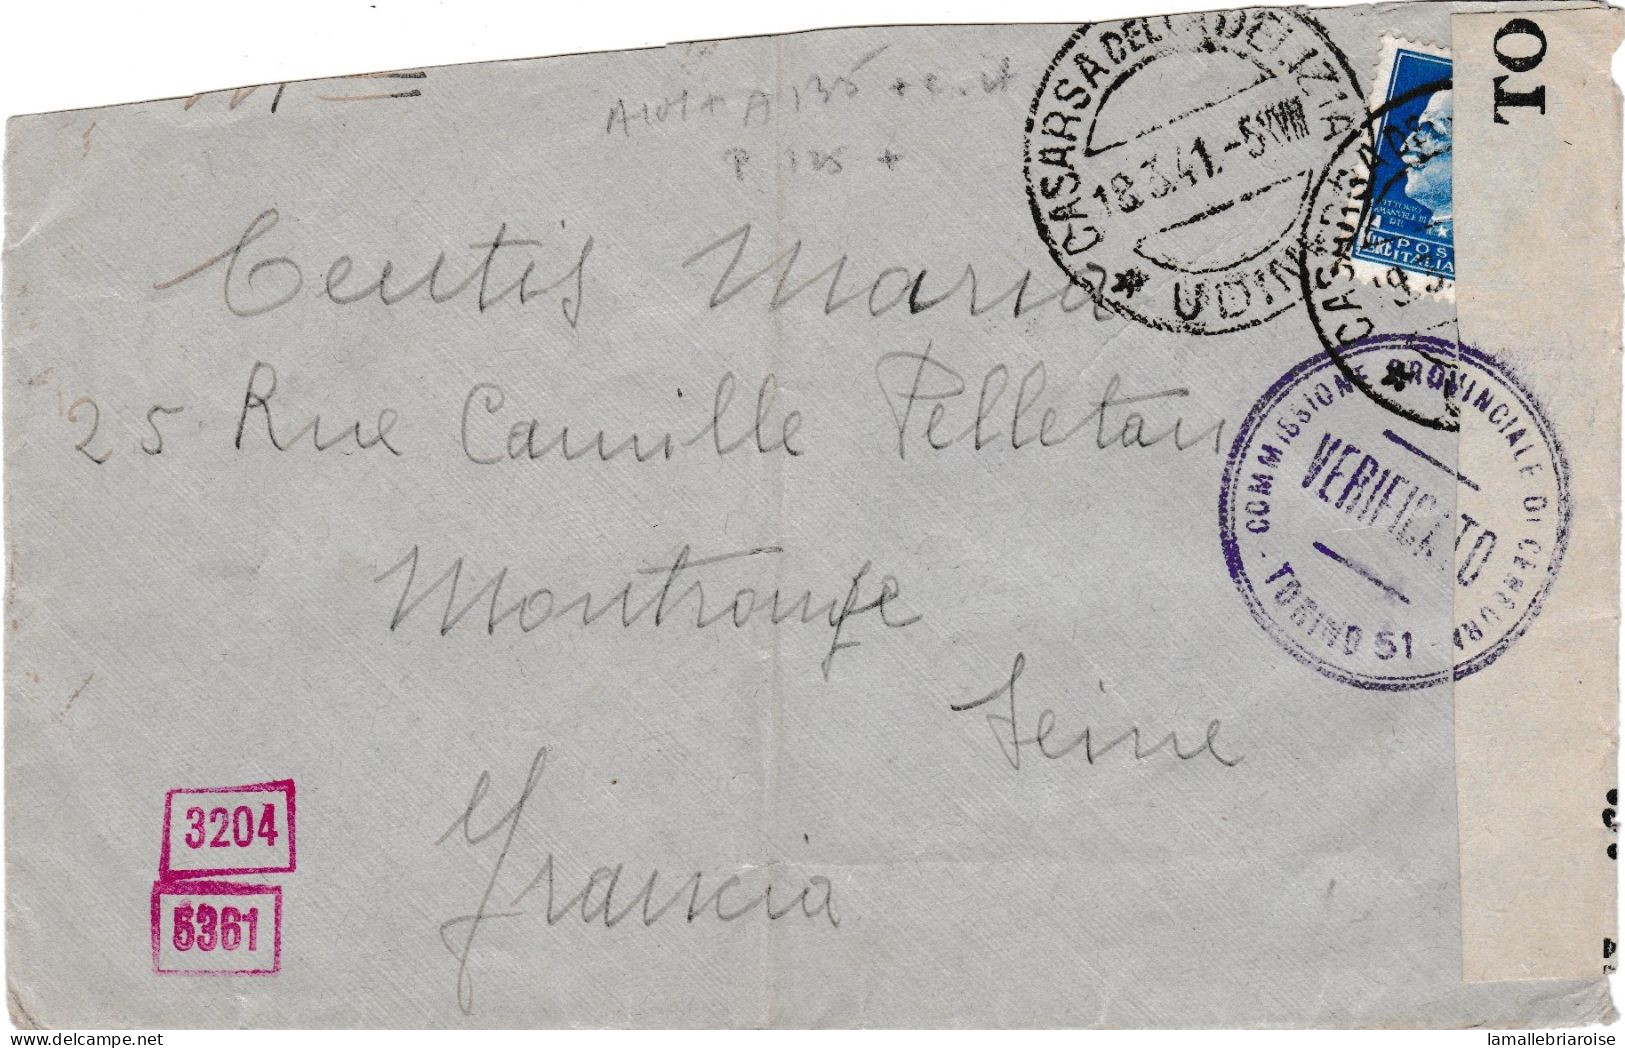 TO
A101 + A 135 + c. it
P. 135 +
CASARSA DELLA DELIZIA
18.3.41.-5 XVIII
* UDINE
VITTORIO
EMANUELE III
POS
ITALIA
Centis Maria
25 Rue Camille Pelletan
Montrouge
Seine
Francia
COMMISSIONE PROVINCIALE DI CENSURA
VERIFICATO
TORINO 51
3204
5361
delcampe.net
lamallebriaroise